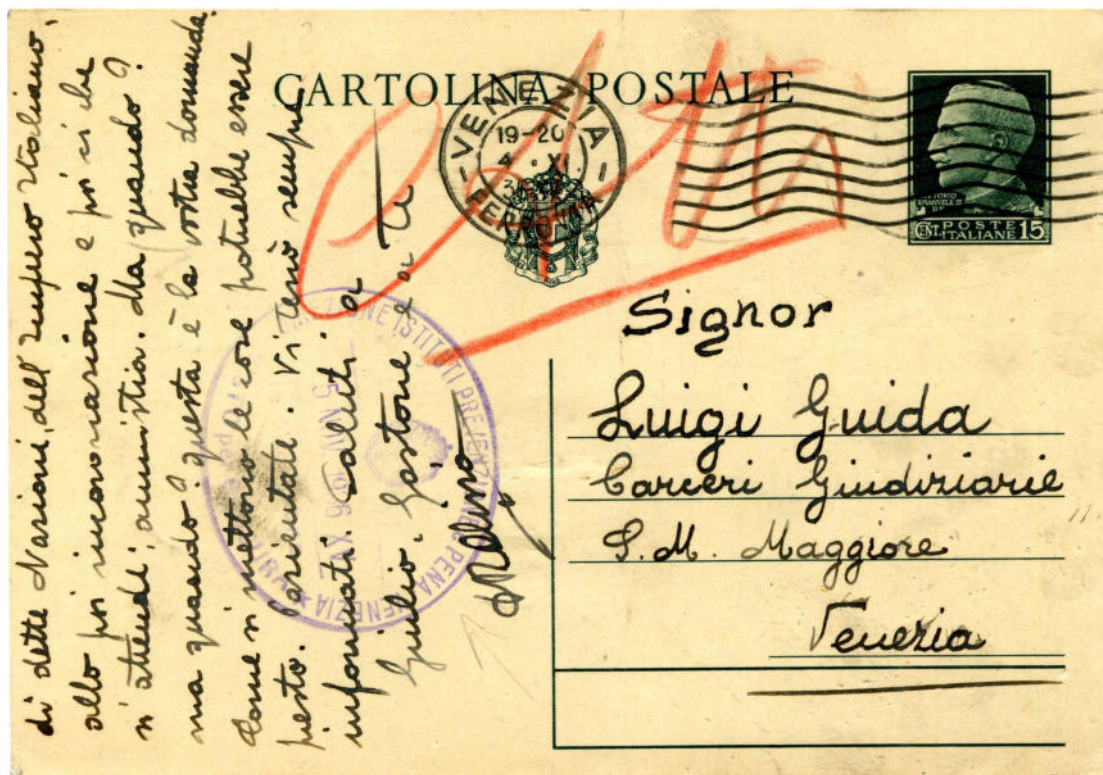 CARTOLINA POSTALE
VENEZIA
19-20
4 · XI
FERROVIA
VITTORIO
EMANUELE III
CENT. POSTE 15
ITALIANE
Signor
Luigi Guida
Carceri Giudiziarie
S. M. Maggiore
Venezia
di dette Nazioni, dell'Impero Italiano,
allo poi incoronazione e poi si che
si attendi amnistia. Ma quando?
ma quando? questa è la vostra domanda.
Come si mettono le cose potrebbe essere
presto. Pazientate. Vi terrò sempre
informati. Saluti a
Giulio. Gastone e a te
ISTITUTI PREVENZIONE PENA
VENEZIA